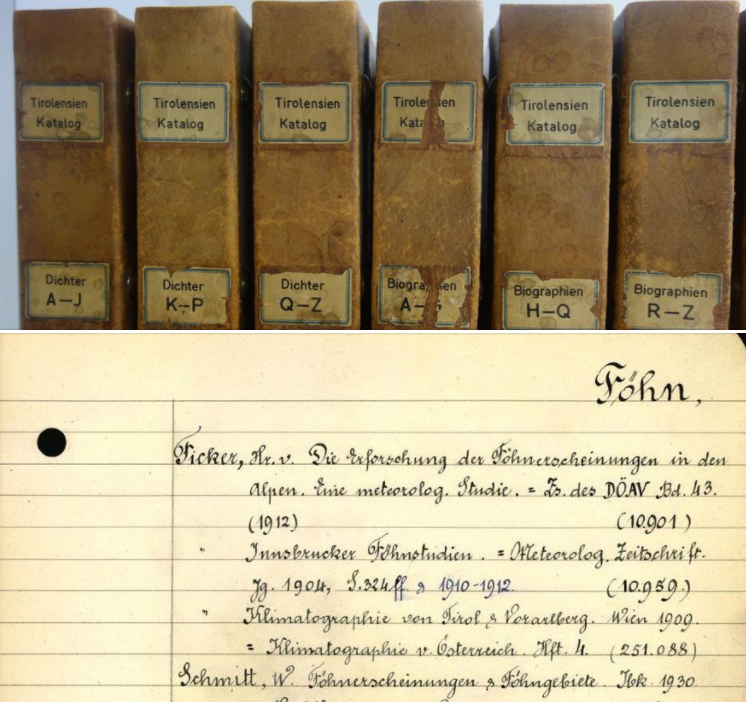 Tirolensien
Katalog
Dichter
A–J
Tirolensien
Katalog
Dichter
K–P
Tirolensien
Katalog
Dichter
Q–Z
Katalog
A–G
Tirolensien
Katalog
Biographien
H–Q
Tirolensien
Katalog
Biographien
R–Z
Föhn,
Ficker, Hr. v. Die Erforschung der Föhnerscheinungen in den
Alpen. Eine meteorolog. Studie. = Zs. des DÖAV Bd. 43.
(1912) (10.901)
" Innsbrucker Föhnstudien. = Meteorolog. Zeitschrift.
Jg. 1904, S. 324 ff & 1910-1912. (10.959.)
" Klimatographie von Tirol & Vorarlberg. Wien 1909.
= Klimatographie v. Österreich. Hft. 4. (251.088)
Schmitt, W. Föhnerscheinungen & Föhngebiete. Ibk. 1930.